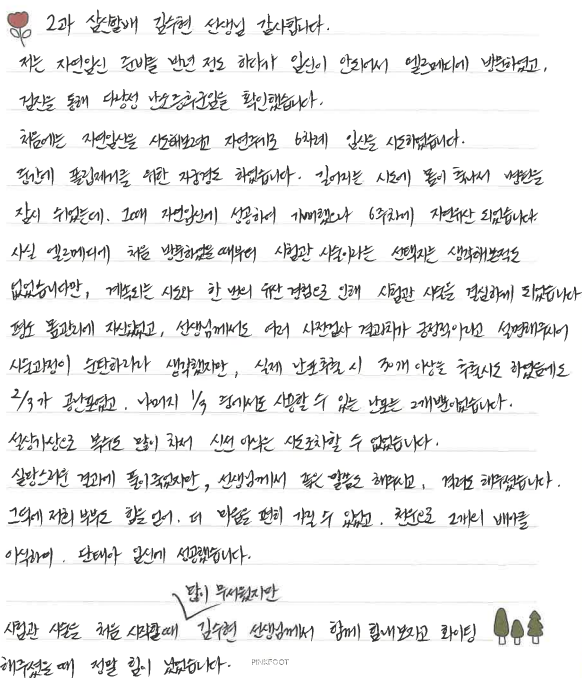 2과 삼신할배 김수현 선생님 감사합니다.
저는 자연임신 준비를 반년 정도 하다가 임신이 안되어서 엘르메디에 방문하였고,
검진을 통해 다낭성 난소증후군임을 확인했습니다.
처음에는 자연임신을 시도해보려고 자연주기로 6차례 임신을 시도하였습니다.
중간에 폴립제거를 위한 자궁경도 하였습니다. 길어지는 시도에 몸이 축나서 병원을
잠시 쉬었는데, 그때 자연임신에 성공하여 기뻐했으나 6주차에 자연유산 되었습니다
사실 엘르메디에 처음 방문하였을 때부터 시험관 시술이라는 선택지는 생각해보적도
없었습니다만, 계속되는 시도와 한 번의 유산 경험으로 인해 시험관 시술을 결심하게 되었습니다
평소 몸관리에 자신있었고, 선생님께서도 여러 사전검사 결과치가 긍정적이라고 설명해주시어
시술과정이 순탄하리라 생각했지만, 실제 난포채취 시 30개 이상을 추출시도 하였음에도
2/3가 공난포였고, 나머지 1/3 중에서도 사용할 수 있는 난포는 2개뿐이었습니다.
설상가상으로 복수도 많이 차서 신선 이식은 시도조차할 수 없었습니다.
실망스러운 결과에 풀이죽었지만, 선생님께서 좋은 말씀도 해주시고, 격려도 해주셨습니다.
그덕에 저희 부부도 힘을 얻어, 더 마음을 편히 가질 수 있었고, 천운으로 2개의 배아를
이식하여, 단태아 임신에 성공했습니다.
많이 무서웠지만
시험관 시술을 처음 시작할때 김수현 선생님께서 함께 힘내보자고 화이팅
해주셨을 때 정말 힘이 났었습니다.
PINKFOOT